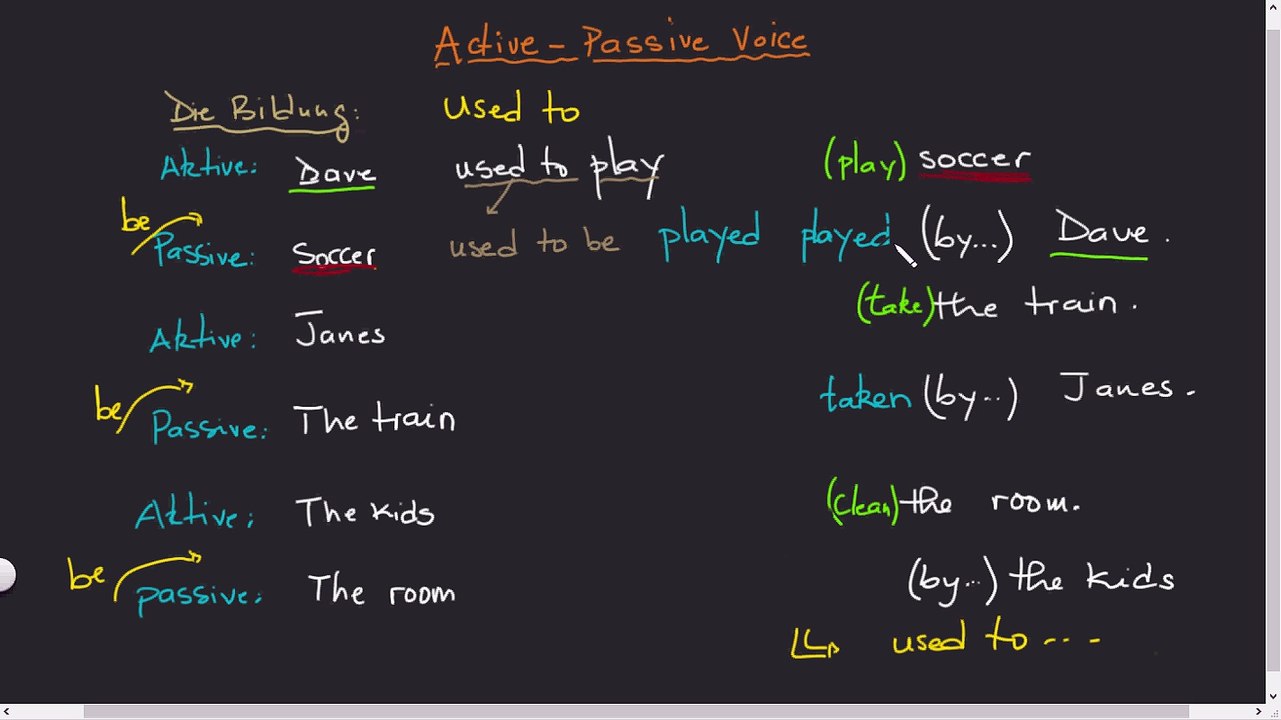 Active - Passive Voice
Die Bildung: used to
Aktive: Dave used to play (play) soccer
be
Passive: Soccer used to be played played (by...) Dave.
Aktive: Janes (take) the train.
be
Passive: The train taken (by..) Janes.
Aktive: The kids (clean) the room.
be
passive: The room (by...) the kids
used to ---